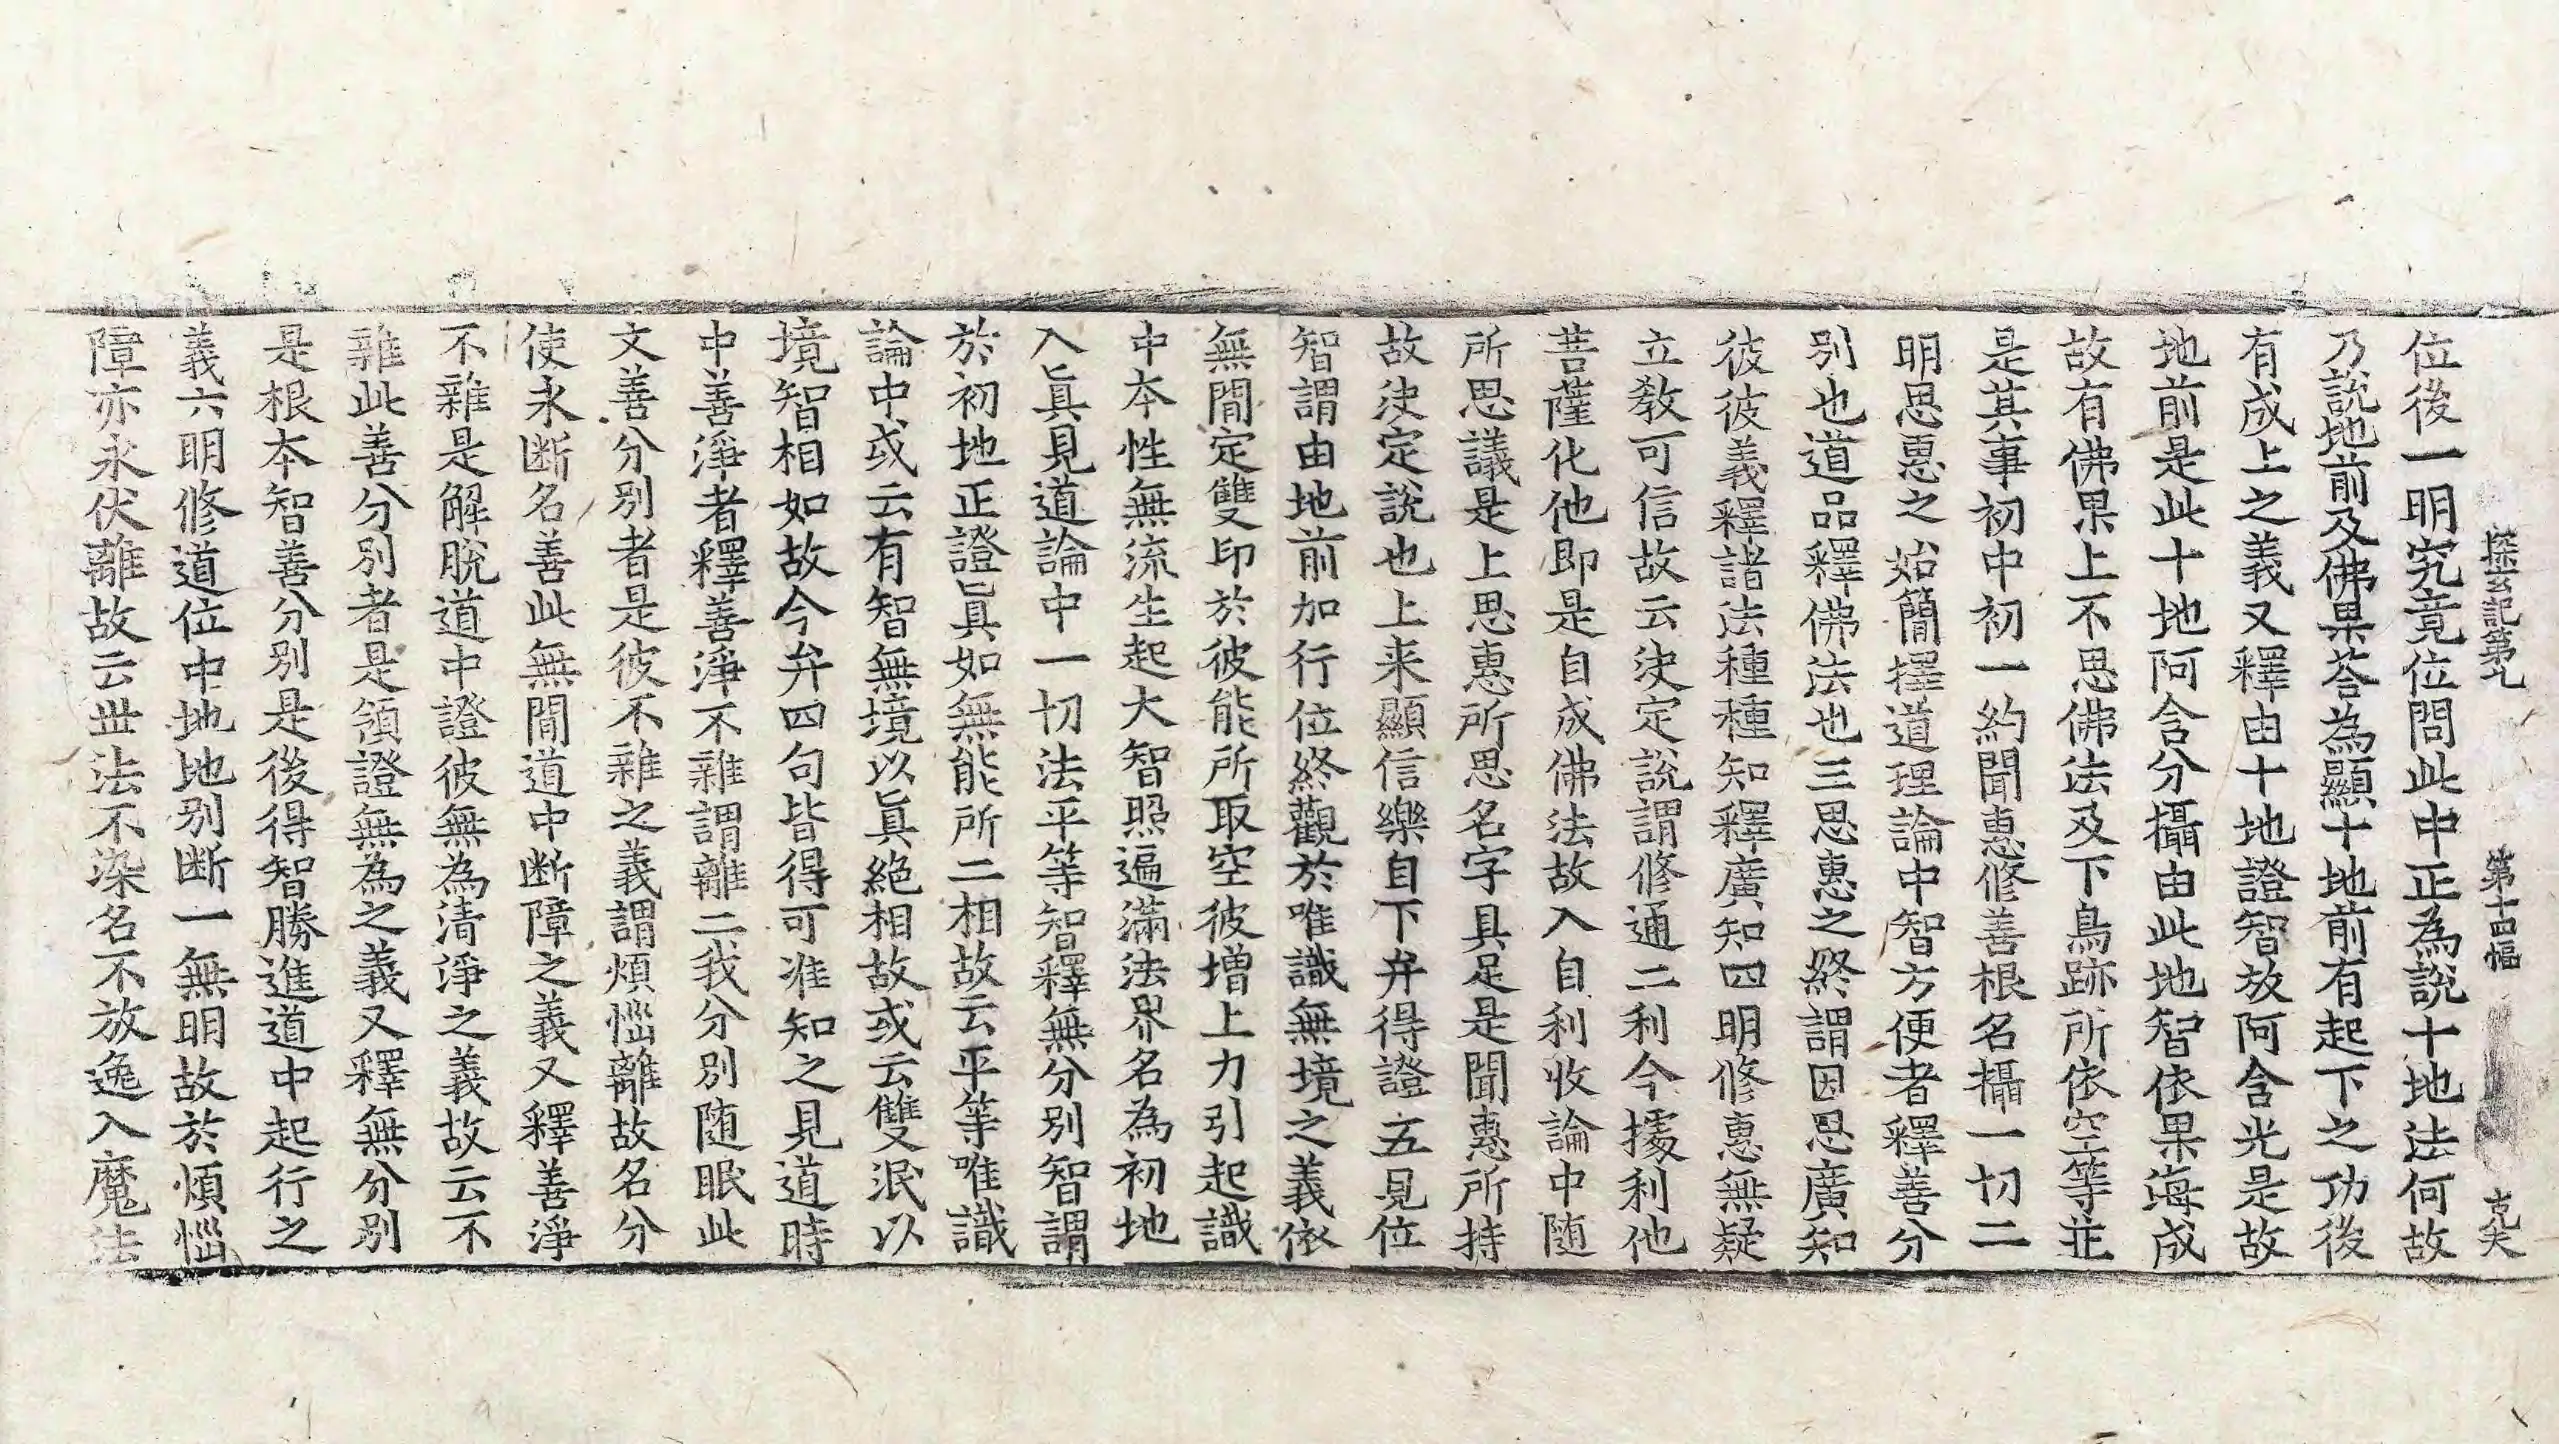 探玄記第九 第十四幅 克夫
位後一明究竟位問此中正為說十地法何故
乃說地前及佛果荅為顯十地前有起下之功後
有成上之義又釋由十地證智故阿含光是故
地前是此十地阿含分攝由此地智依果海成
故有佛果上不思佛法及下鳥跡所依空等並
是其事初中初一約聞惠修善根名攝一切二
明思惠之始簡擇道理論中智方便者釋善分
別也道品釋佛法也三思惠之終謂因思廣知
彼彼義釋諸法種種知釋廣知四明修惠無疑
立教可信故云决定說謂修通二利今據利他
菩薩化他即是自成佛法故入自利收論中随
所思議是上思惠所思名字具足是聞惠所持
故决定說也上来顯信樂自下弁得證五見位
智謂由地前加行位終觀於唯識無境之義依
無間定雙印於彼能所取空彼增上力引起識
中本性無流生起大智照遍滿法界名為初地
入真見道論中一切法平等智釋無分別智謂
於初地正證真如無能所二相故云平等唯識
論中或云有智無境以真絕相故或云雙泯以
境智相如故今弁四句皆得可准知之見道時
中善淨者釋善淨不雜謂離二我分別随眠此
文善分別者是彼不雜之義謂煩惱離故名分
使永断名善此無間道中断障之義又釋善淨
不雜是解脫道中證彼無為清淨之義故云不
雜此善分別者是領證無為之義又釋無分別
是根本智善分別是後得智勝進道中起行之
義六明修道位中地地別断一無明故於煩惱
障亦永伏離故云世法不染名不放逸入魔法